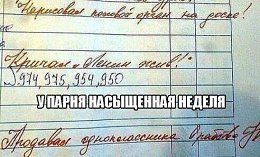 Нарисовал половой орган на доске!
Кричал "Ленин жив!"
974, 975, 954, 950
У ПАРНЯ НАСЫЩЕННАЯ НЕДЕЛЯ
Продавал одноклассника в рабство